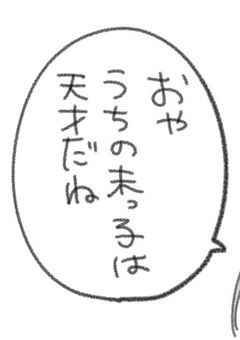 おや
うちの末っ子は
天才だね